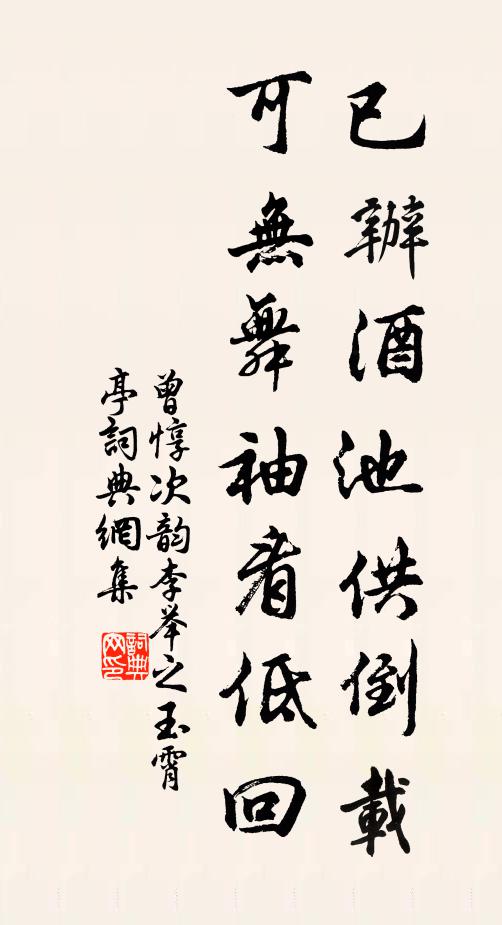 已辦酒池供倒載
可無舞袖看低回
曾惇次韵李举之玉霄
亭詞典網集
詞典
网印